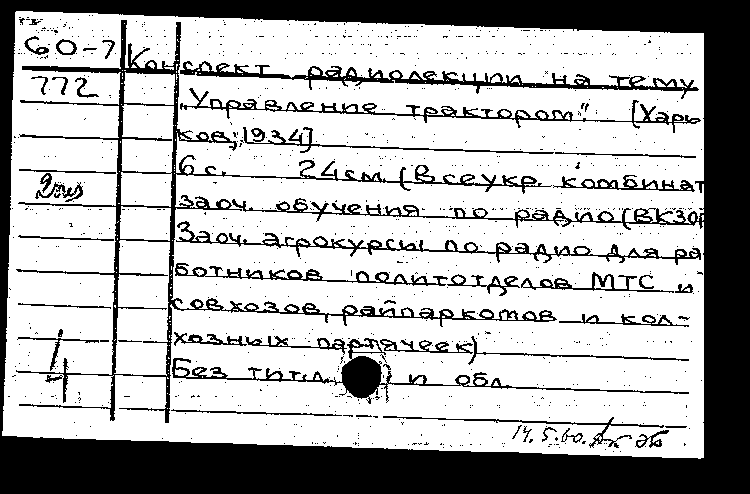 60-7 Конспект радиолекции на тему
772 „Управление трактором". [Харь
ков, 1934]
6 с. 24 см. (Всеукр. комбинат
заоч. обучения по радио (ВКЗОР
Заоч. агрокурсы по радио для ра
ботников политотделов МТС и
совхозов, райпаркомов и кол-
хозных партячеек).
Без тит. л. и обл.
14.5.60.